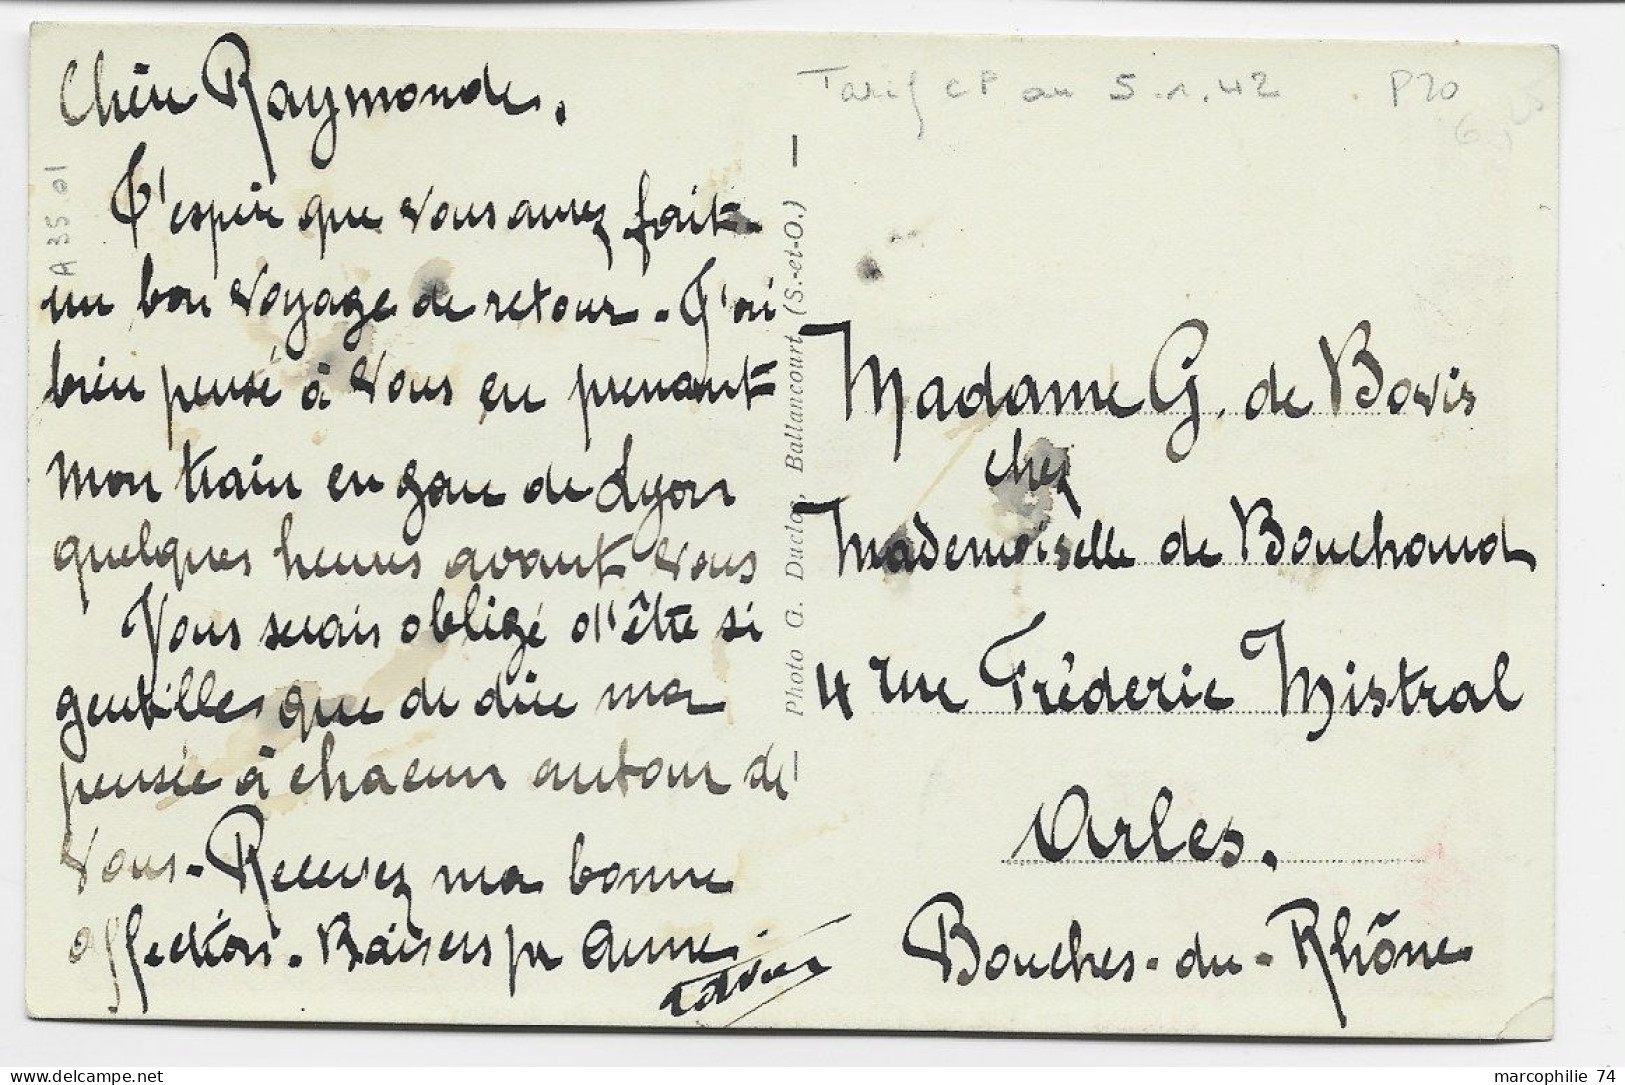 Chère Raymonde.
J'espère que vous aurez fait
un bon voyage de retour. J'ai
bien pensé à vous en prenant
mon train en gare de Lyon
quelques heures avant vous
Vous serais obligé d'être si
gentilles que de dire ma
pensée à chacun autour de
vous. Recevez ma bonne
affection. Baisers pr Anne.
A 35 01
Photo G. Duclos, Ballancourt (S.-et-O.)
Tarif CP au 5.1.42 P20
Madame G. de Bovis
chez
Mademoiselle de Bouchaud
4 rue Fréderic Mistral
Arles.
Bouches-du-Rhône
marcophilie 74